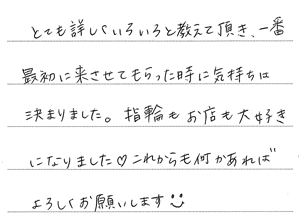 とても詳しくいろいろと教えて頂き、一番
最初に来させてもらった時に気持ちは
決まりました。指輪もお店も大好き
になりました♡これからも何かあれば
よろしくお願いします☺